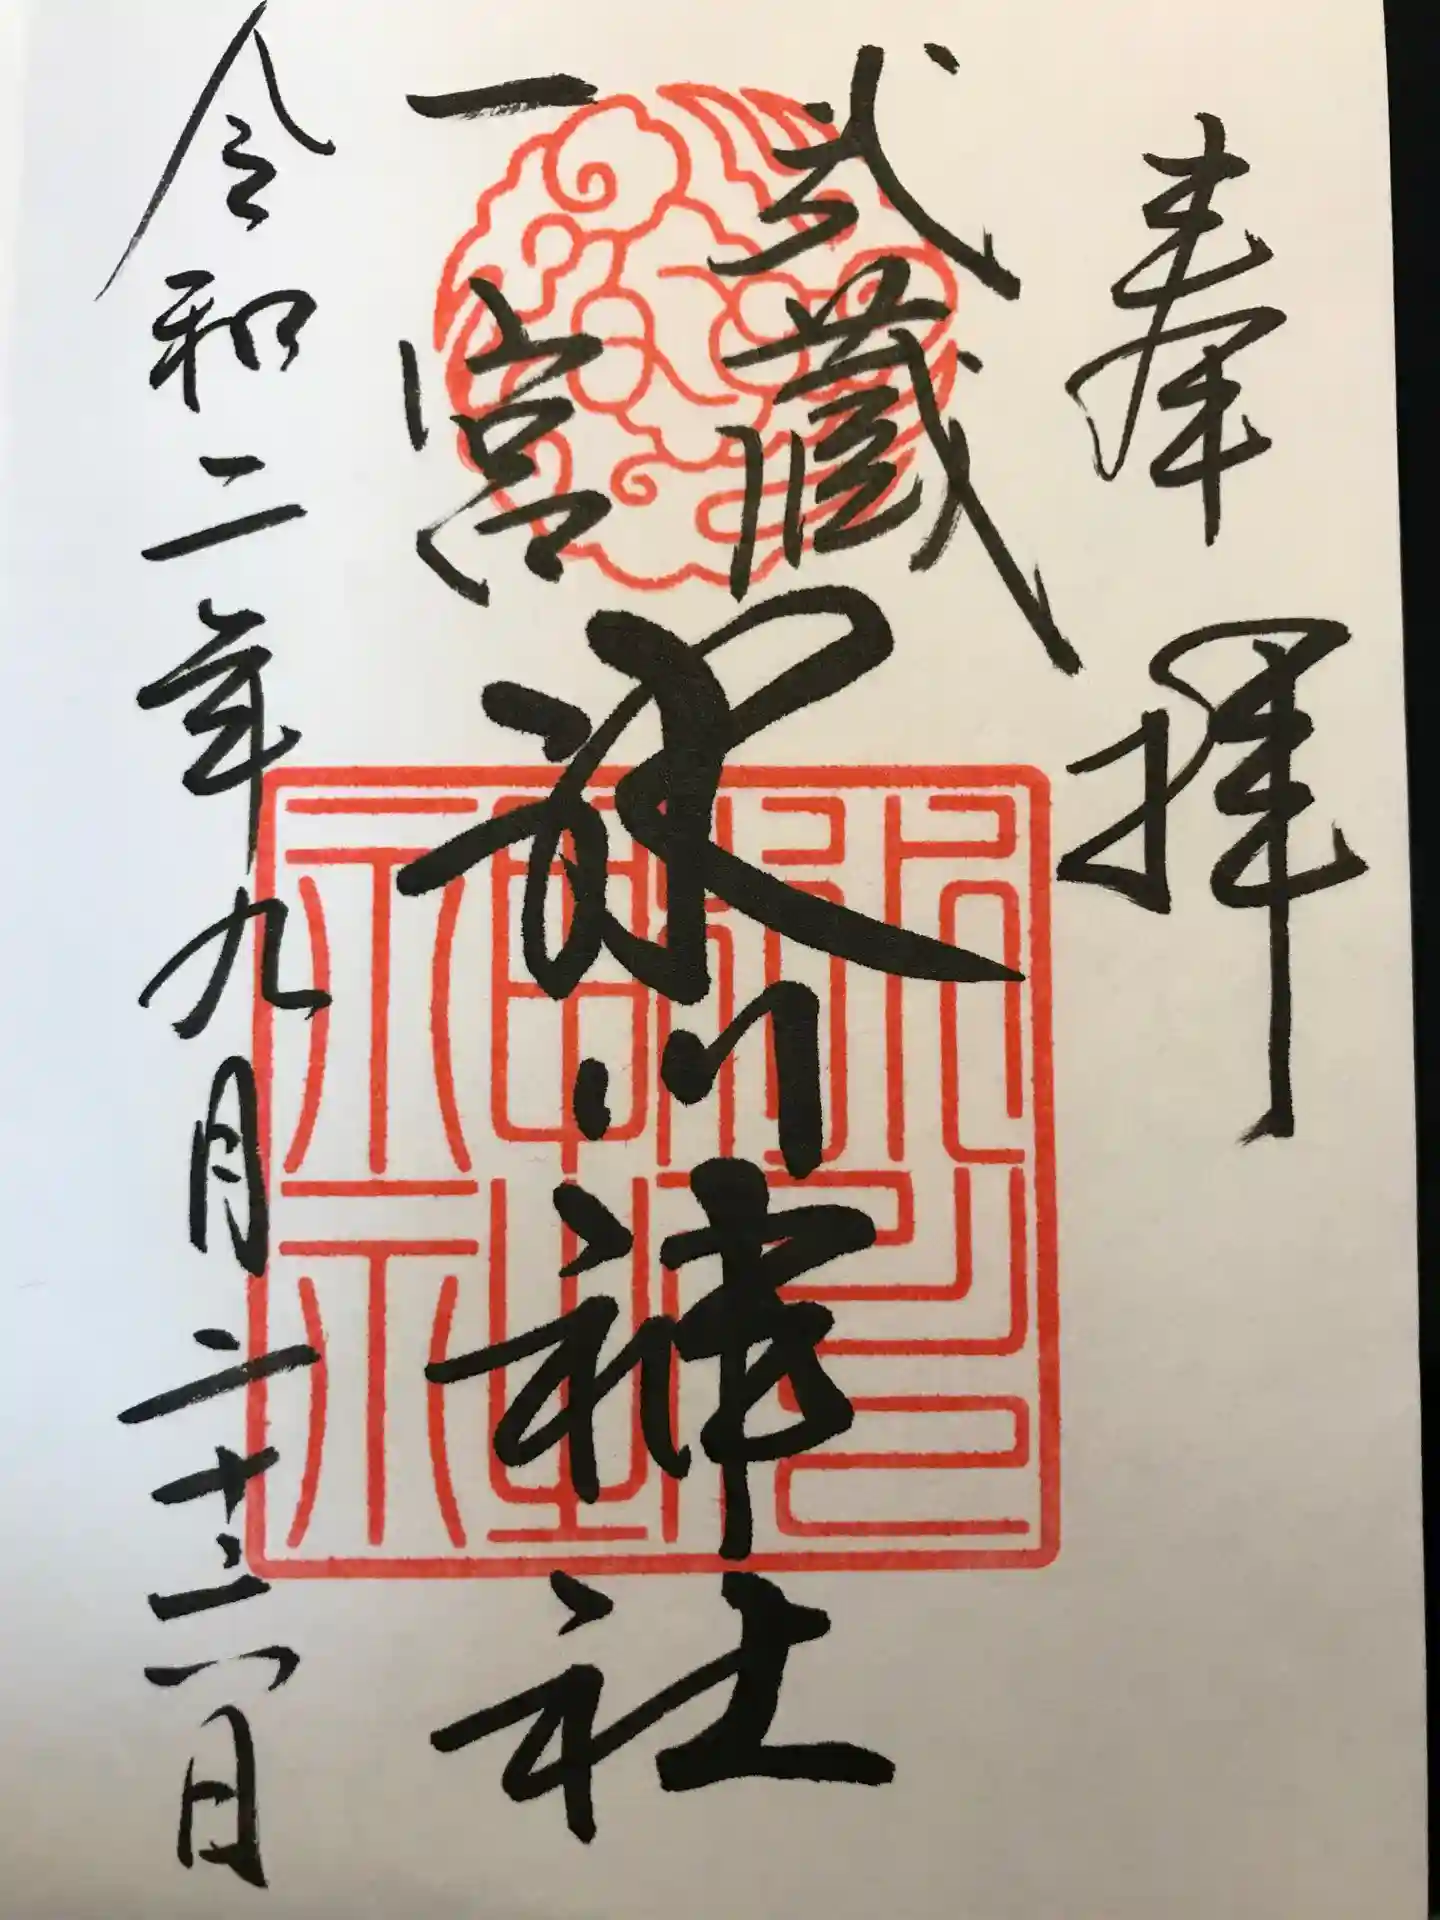 奉拝
武蔵
一宮
氷川神社
令和二年九月二十三日